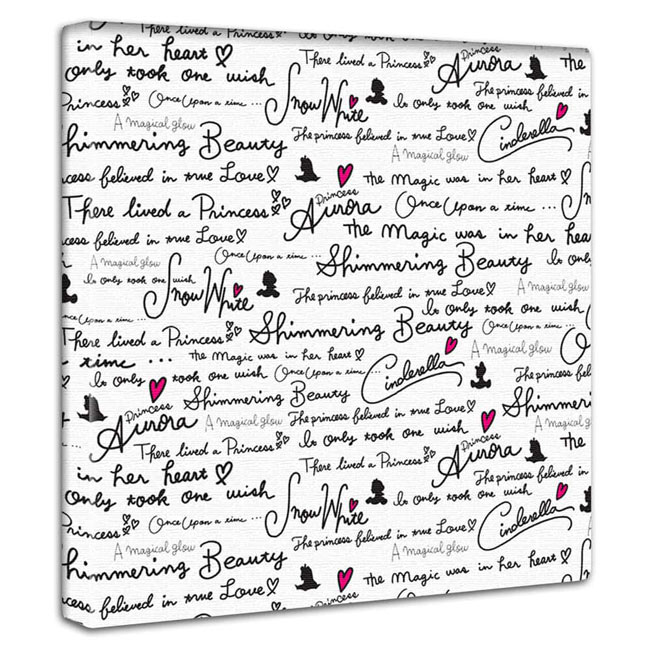 There lived a Princess
in her heart There lived a Princess Princess Aurora The
only took one wish The princess felieved in
Princess Once Upon a time ... Snow White Is only took one wish
A magical glow The princess felieved in true Love Cinderella
Shimmering Beauty A magical glow
cess felieved in true Love The Magic was in her heart
There lived a Princess Princess Aurora Once Upon a time ...
The Magic was in her hea
cess felieved in true Love Once Upon a time ... Shimmering Beauty Is only
A magical glow
Is only took one wish Snow White The princess felieved in true Love A magical glow
Is only took one wish
Once Upon a time ... Shimmering Beauty Once Upon a time ...
There lived a Princess A magical glow
time ... The Magic was in her heart Cinderella
Is only took one wish Once Upon a time ... The princess fe
Princess Aurora Shimmering Beauty Shimmeri
A magical glow The princess felieved in true Love Princess Aurora A magical glow
There lived a Princess Is only took one wish The
in her heart There lived a Princess The princess felieved in
only took one wish Snow White Is only took one wish
Princess Once Upon a time ... Cinderella
A magical glow The princess felieved in true Love
Shimmering Beauty A magical glow
cess felieved in true Love The Magic was in her heart
There lived a Princess Princess Once Upon a time